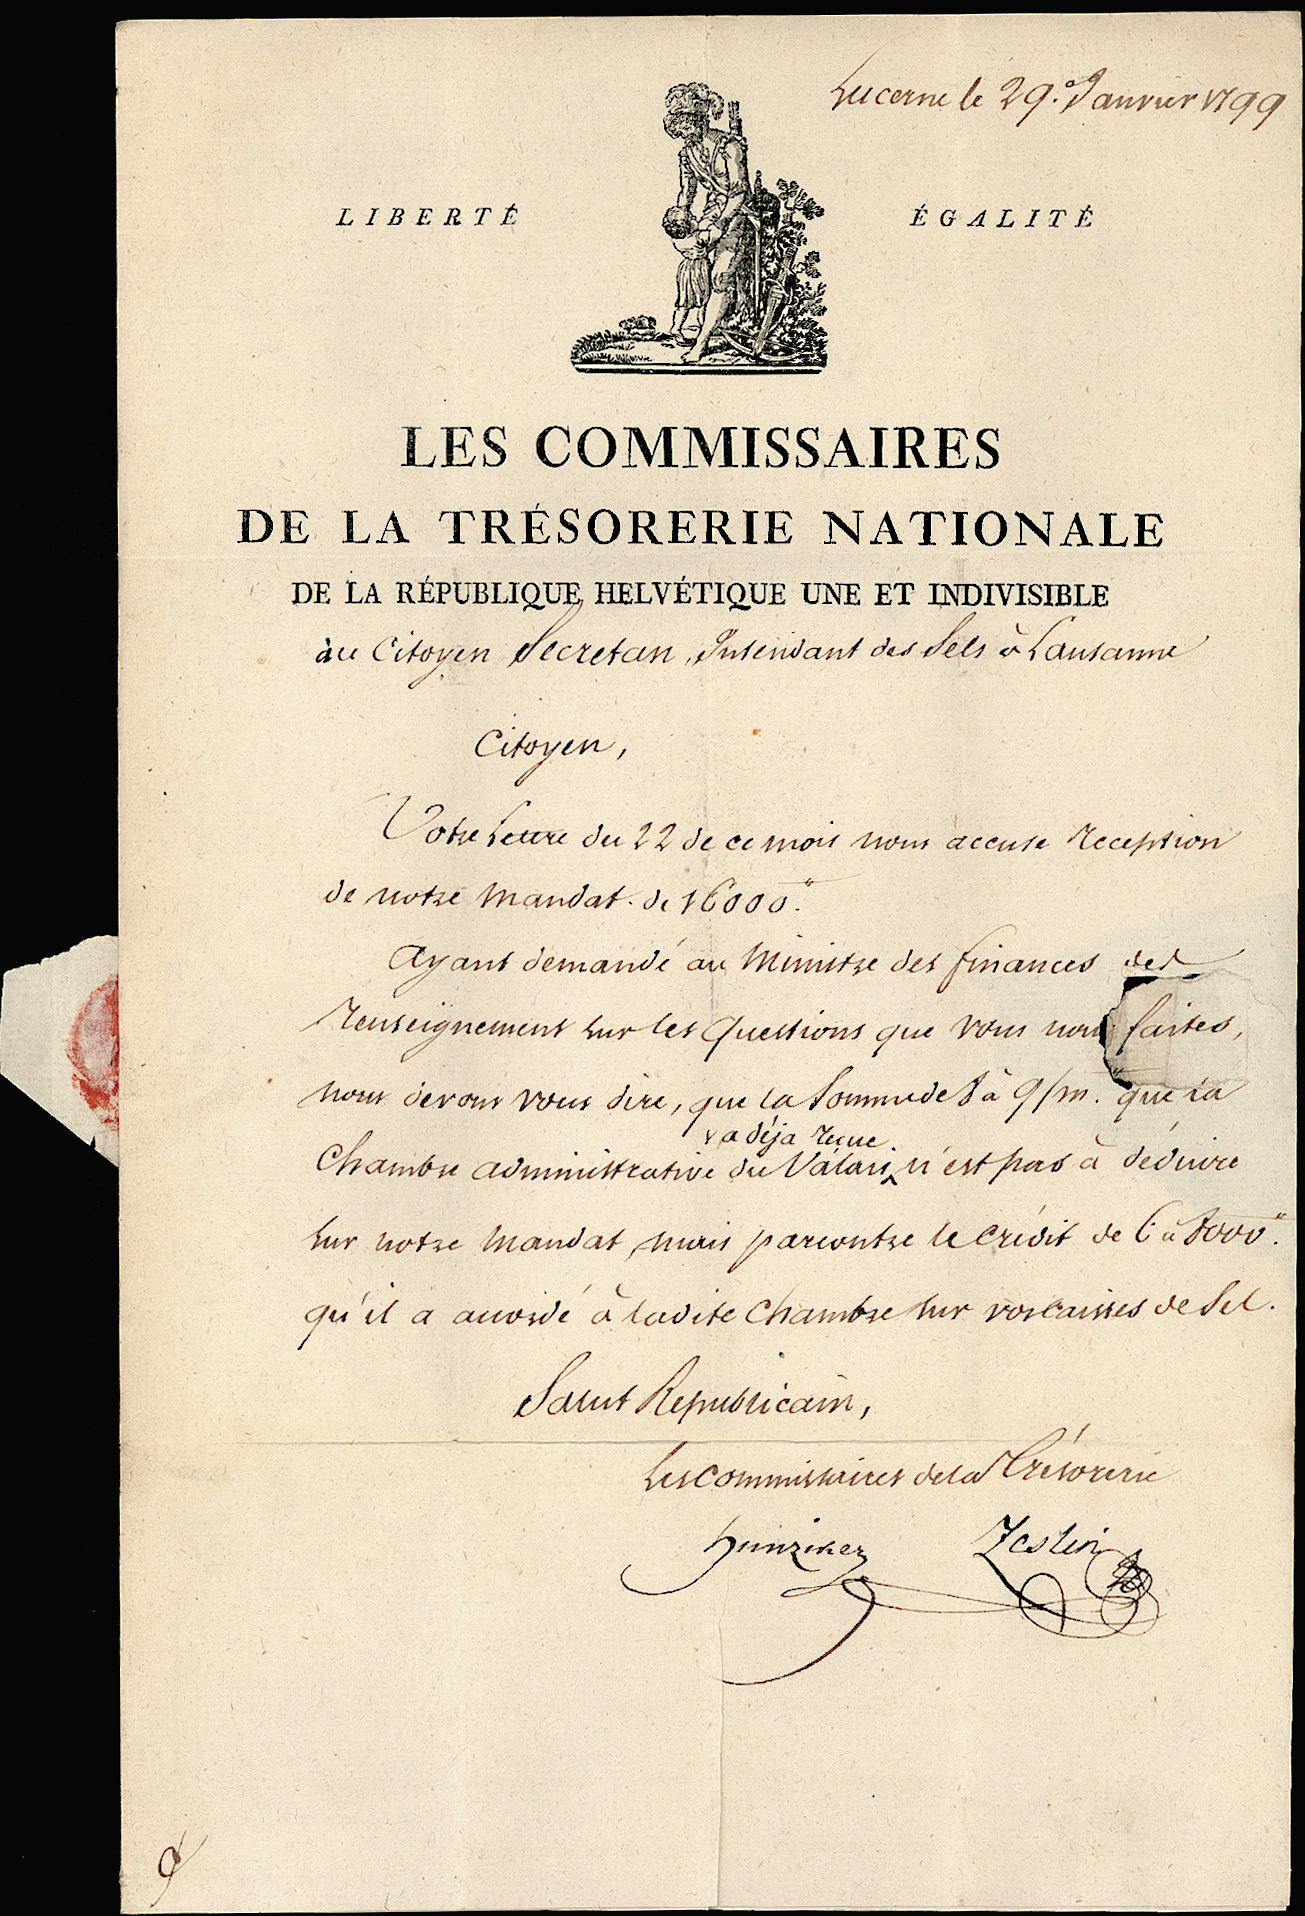 Lucerne le 29.e Janvier 1799
LIBERTÉ ÉGALITÉ
LES COMMISSAIRES
DE LA TRÉSORERIE NATIONALE
DE LA RÉPUBLIQUE HELVÉTIQUE UNE ET INDIVISIBLE
au Citoyen Secretan, Intendant des Sels à Lausanne
Citoyen,
Votre Lettre du 22 de ce mois nous accuse reception
de notre Mandat de 16000.
Ayant demandé au Ministre des finances des
renseignement sur les Questions que vous nous faites,
nous devons vous dire, que la Somme de 8 à 9/m. que la
a déja reçue
Chambre administrative du Valais n'est pas à déduire
sur notre Mandat, mais parcontre le Crédit de 6 à 8000.
qu'il a accordé à ladite Chambre sur vos Caisses de Sel.
Salut Republicain,
Les Commissaires de la Trésorerie
Hunziker